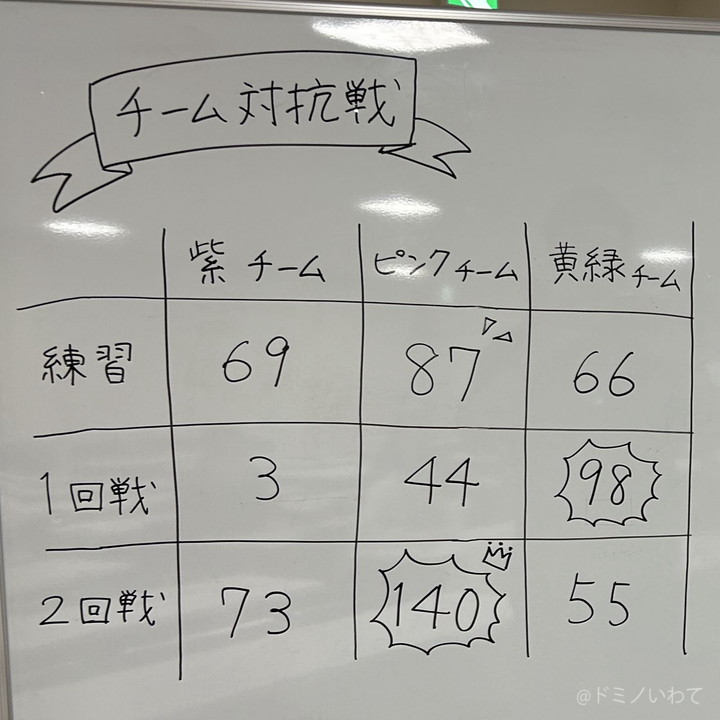 チーム対抗戦
紫チーム ピンクチーム 黄緑チーム
練習 69 87 66
1回戦 3 44 98
2回戦 73 140 55
@ドミノいわて